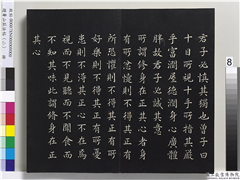 君子必慎其獨也曾子曰
十目所視十手所指其嚴
乎富潤屋德潤身心廣體
胖故君子必誠其意
所謂修身在正其心者身
有所忿懥則不得其正有
所恐懼則不得其正有所
好樂則不得其正有所憂
患則不得其正心不在焉
視而不見聽而不聞食而
不知其味此謂修身在正
其心
8